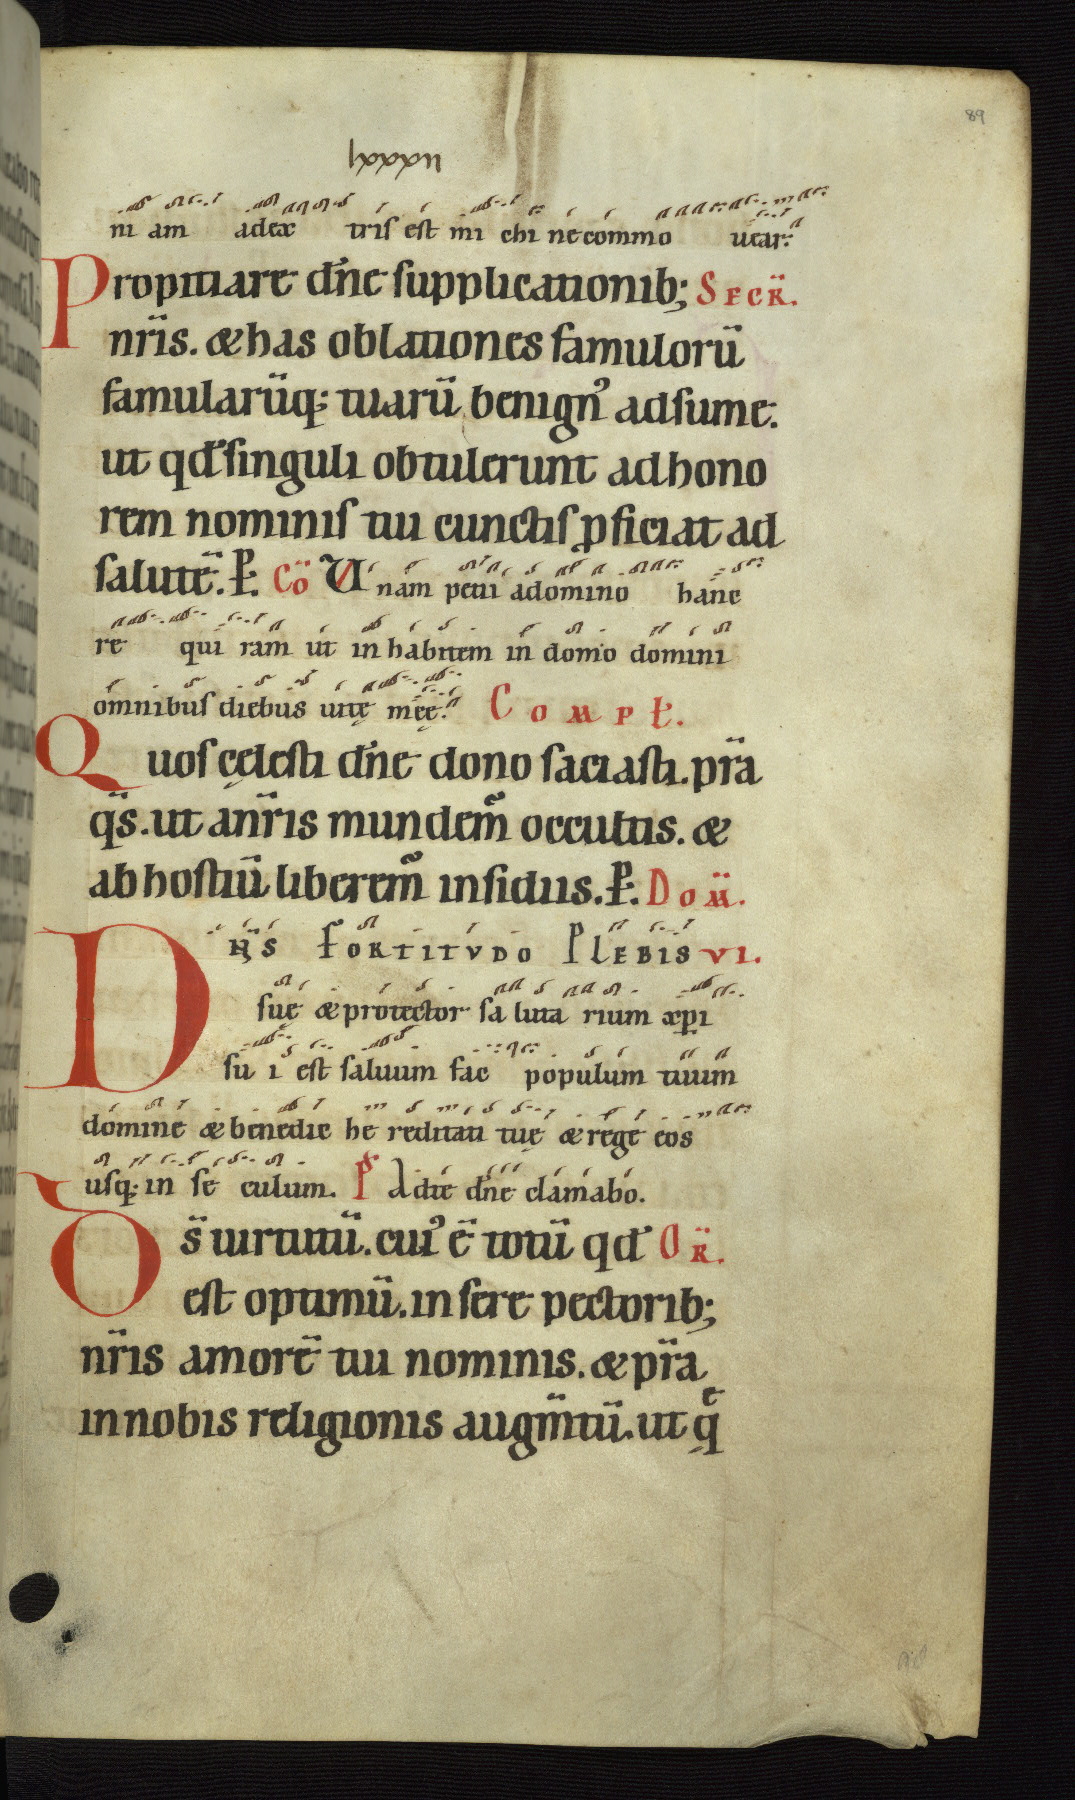 89
lxxxii
ni am adex tris est mi chi ne commo uear.
Propitiare dñe supplicationib; Secr̃.
nr̃is. & has oblationes famulorũ
famularũq; tuarũ benignꝰ adsume.
ut qđ singuli obtulerunt ad hono
rem nominis tui cunctis ꝓficiat ad
salutẽ. P̱. Cõ Unam petii a domino hanc
re qui ram ut in habitem in domo domini
omnibus diebus uitę meę. Compl̃.
Quos cęlesti dñe dono saciasti. pr̃a
q̃s. ut a nr̃is mundemꝰ occultis. &
ab hostiũ liberemꝰ insidiis. P̱. Dom̃.
Dñs fortitvdo plebis vi.
suę & protector saluta rium xp̱i
su i est saluum fac populum tuum
domine & benedic he reditati tuę & rege eos
usq; in se culum. Ps Ad te dñe clamabo.
Ds̃ uirtutũ. cuiꝰ ẽ totũ qđ Or̃.
est optimũ. insere pectorib;
nr̃is amorẽ tui nominis. & pr̃a
in nobis religionis augm̃tũ. ut qͤ